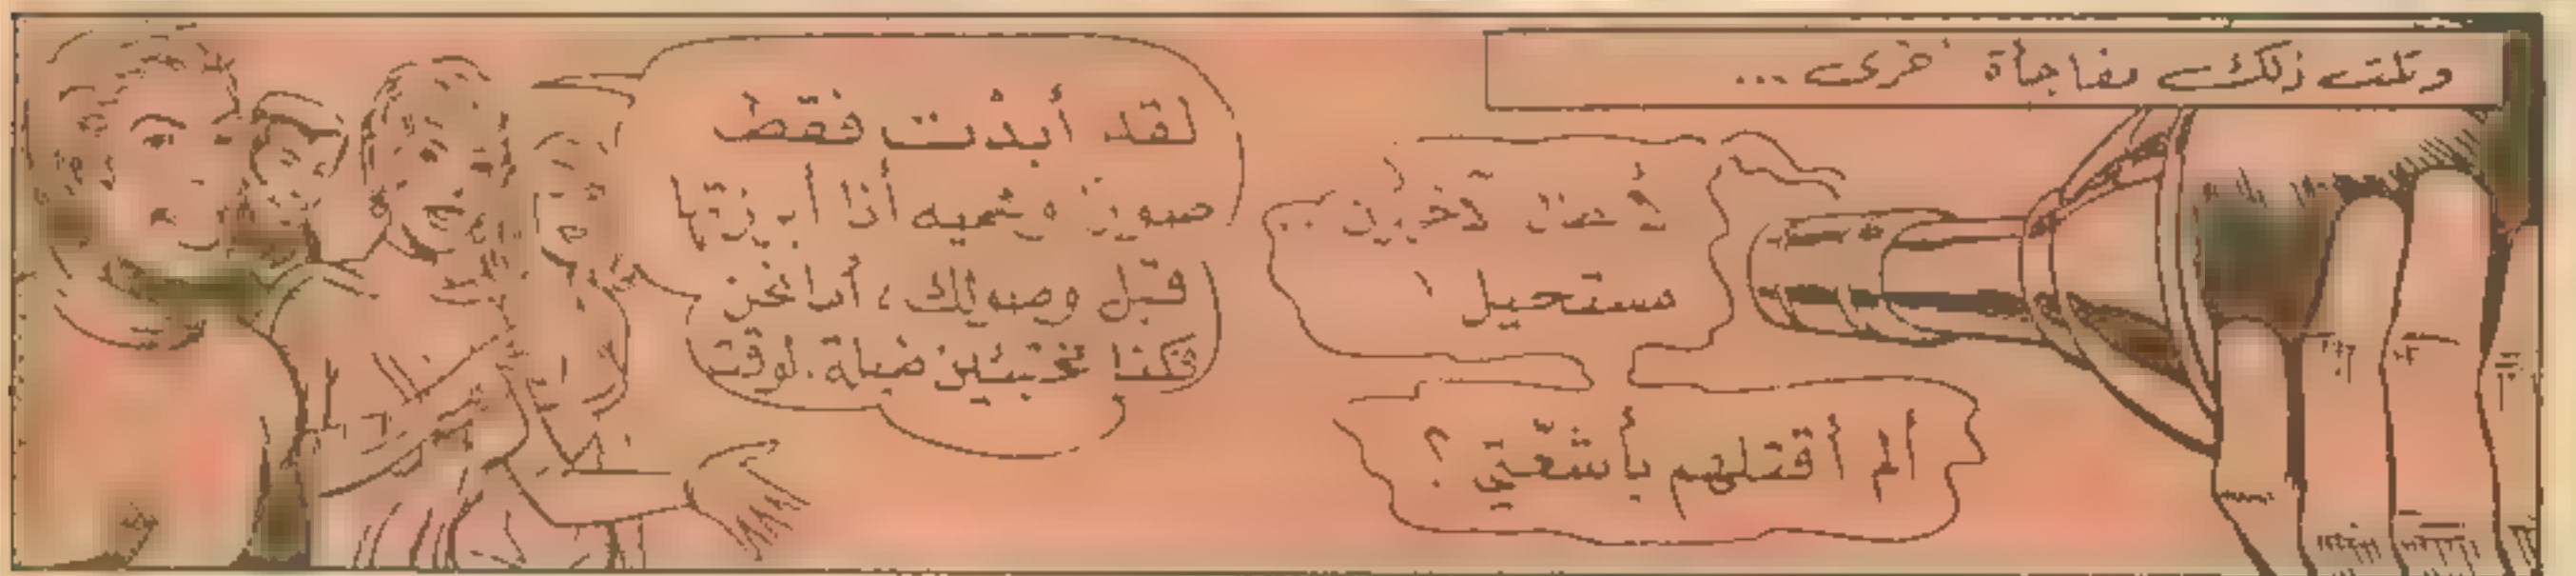 وتلت ذلك مفاجأة أخرى ...
الآخرين ..
مستحيل !
ألم أقتلهم بأشعتي ؟
لقد أبدت فقط
صورا وهمية
قبل وصولك ، أما نحن
فكنا مختبئين طيلة الوقت